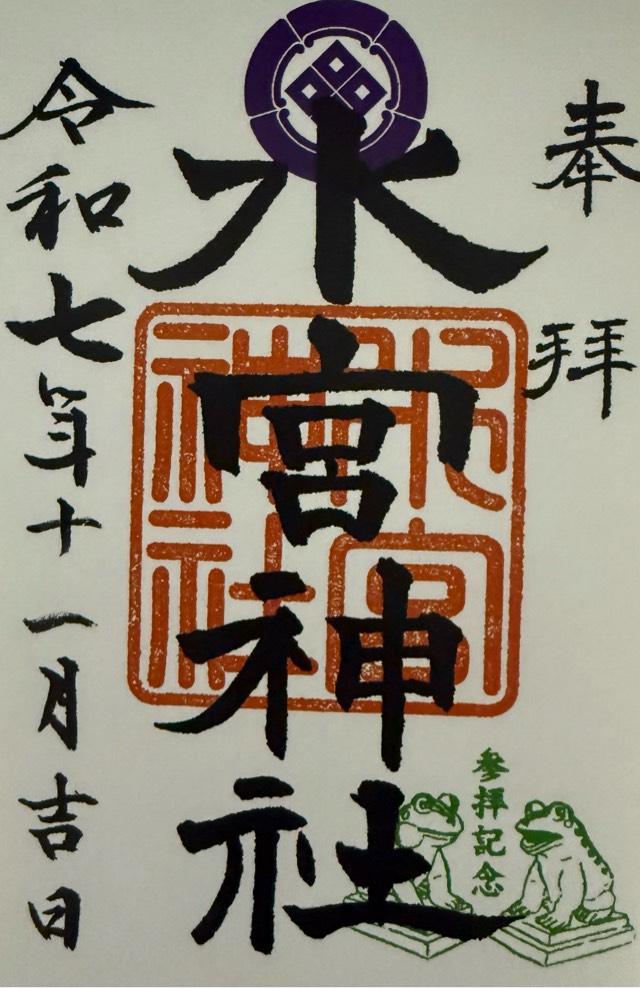 奉拝
水宮神社
水宮神社
参拝記念
令和七年十一月吉日